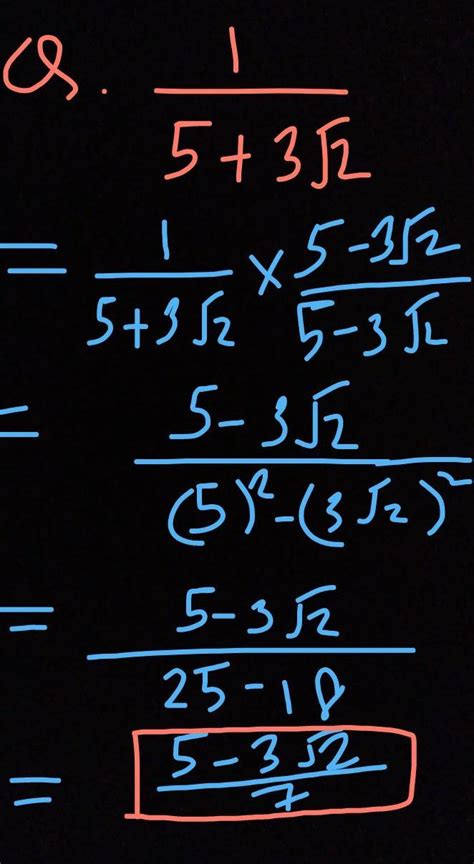 Q. 1/(5+3√2)
= 1/(5+3√2) × (5-3√2)/(5-3√2)
= (5-3√2)/((5)²-(3√2)²)
= (5-3√2)/(25-18)
= (5-3√2)/7